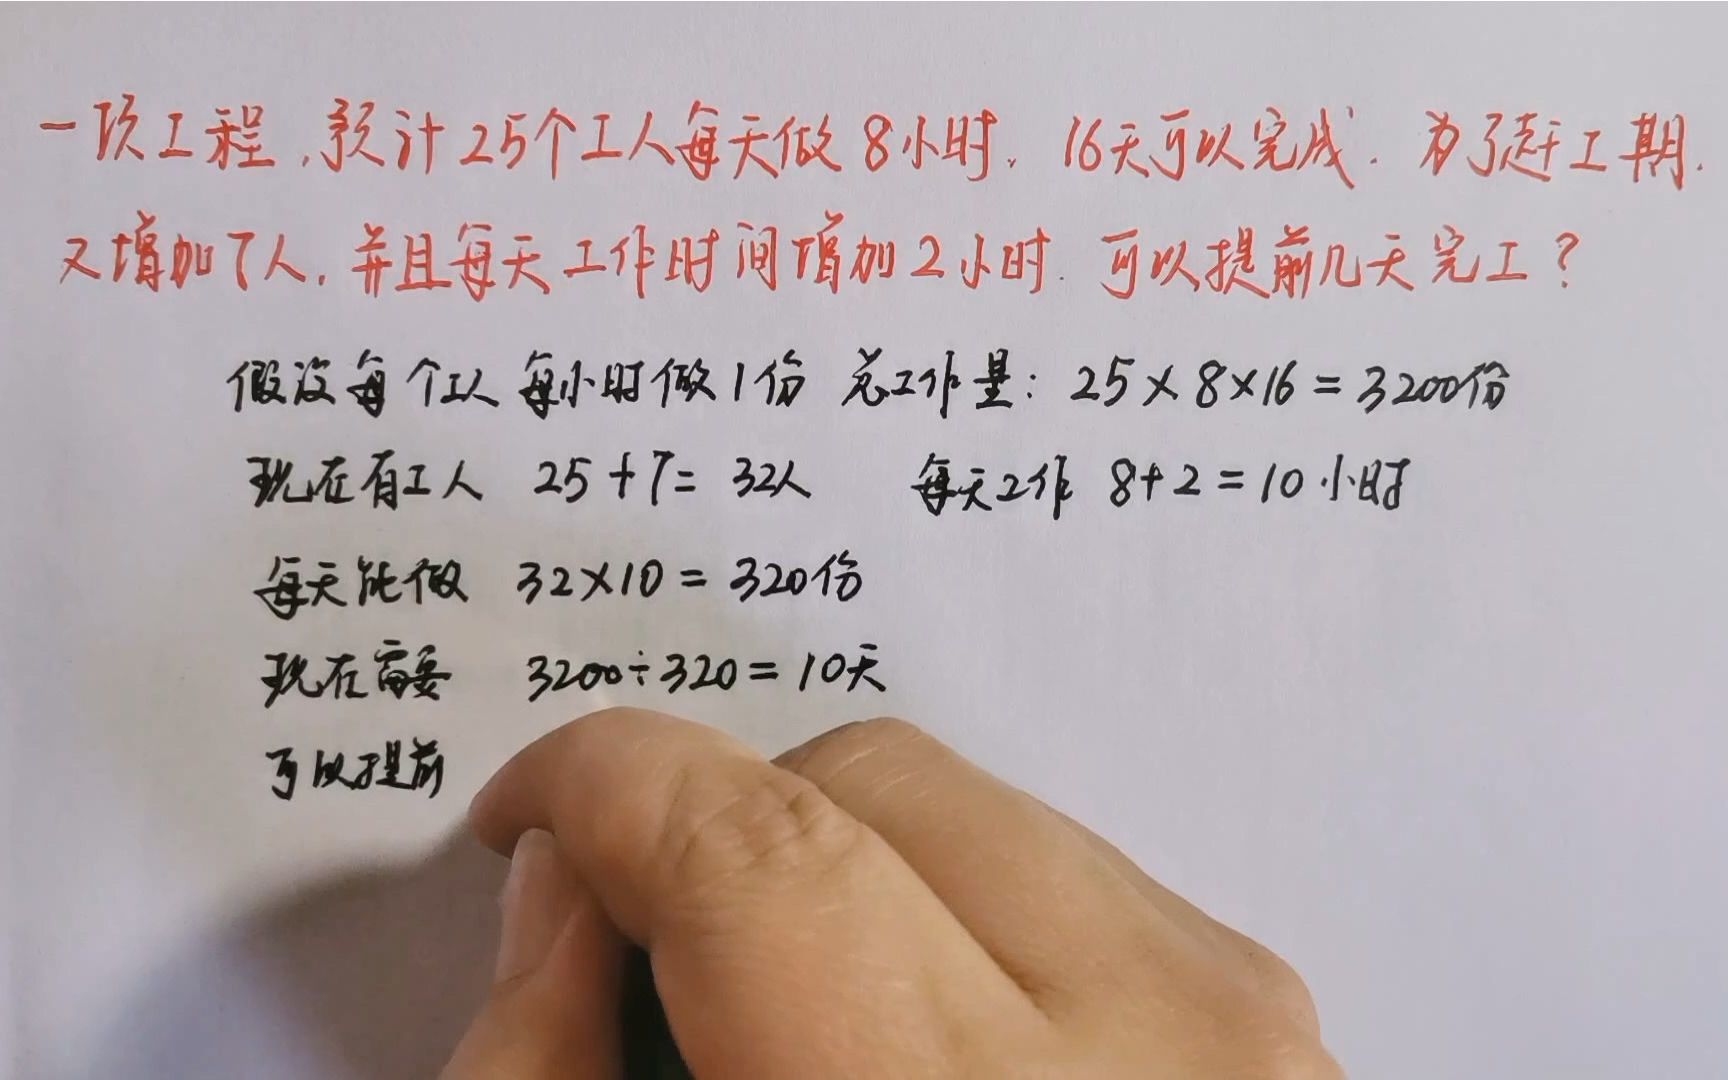 一项工程,预计25个工人每天做8小时,16天可以完成.为了赶工期.
又增加7人,并且每天工作时间增加2小时.可以提前几天完工?
假设每个工人每小时做1份 总工作量:25×8×16=3200份
现在有工人 25+7=32人 每天工作 8+2=10小时
每天能做 32×10=320份
现在需要 3200÷320=10天
可以提前